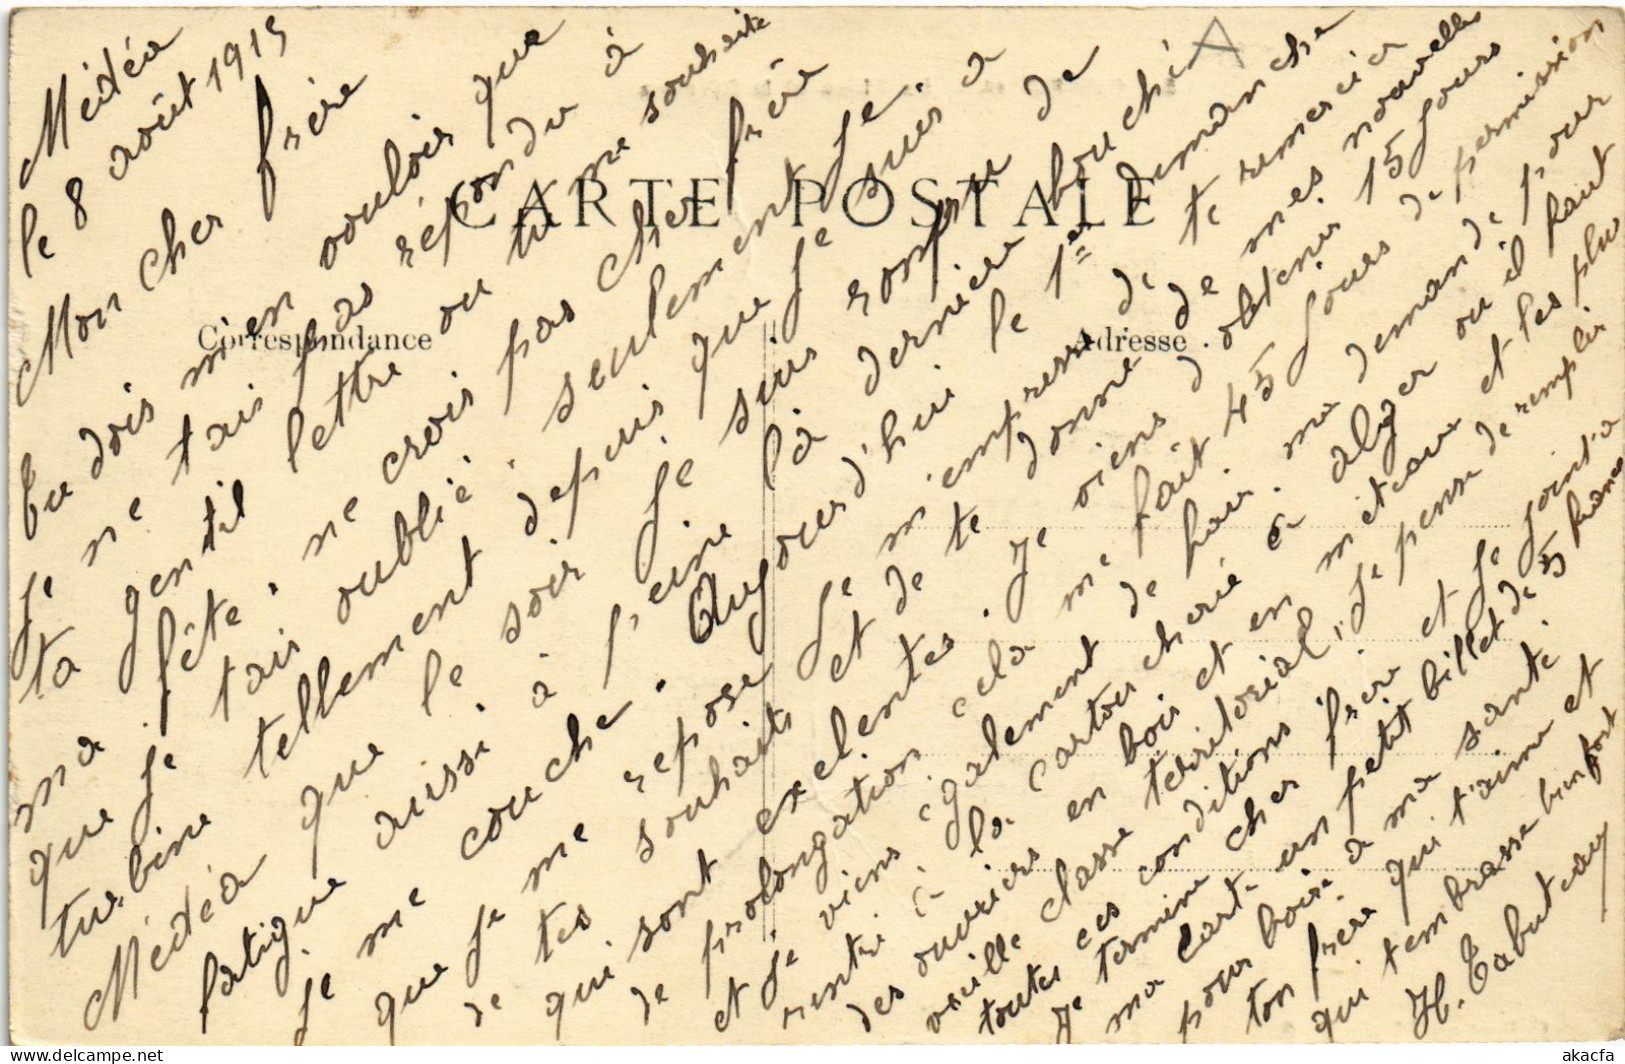 Médéa
le 8 août 1915
Mon cher frère
tu dois m'en vouloir que
je ne t'ais pas répondu à
ta gentil lettre ou tu me souhaite
ma fête. ne crois pas cher frère
que je t'ais oublié seulement je
turbine tellement depuis que je suis a
Médéa que le soir je suis rompu de
fatigue aussi à peine la dernière bouché
je me couche. Aujourd'hui le 1er dimanche
que je me repose je m'empresse de te remercier
de tes souhaits et de te donné de mes nouvelles
qui sont excelentes. Je viens d'obtenir 15 jours
de prolongation cela me fait 45 jours de permission
et je viens également de faire ma demande pour
rentré à la cartoucherie à alger ou il faut
des ouvriers en bois et en métaux et les plus
vieille classe territorial, je pense remplir
toutes ces conditions
Je termine cher frère et je joint a
ma carte un petit billet de 5 francs
pour boire a ma santé.
ton frère qui t'aime et
qui t'embrasse bien fort
H. Tabuteau
CARTE POSTALE
Correspondance
Adresse
A
akacfa